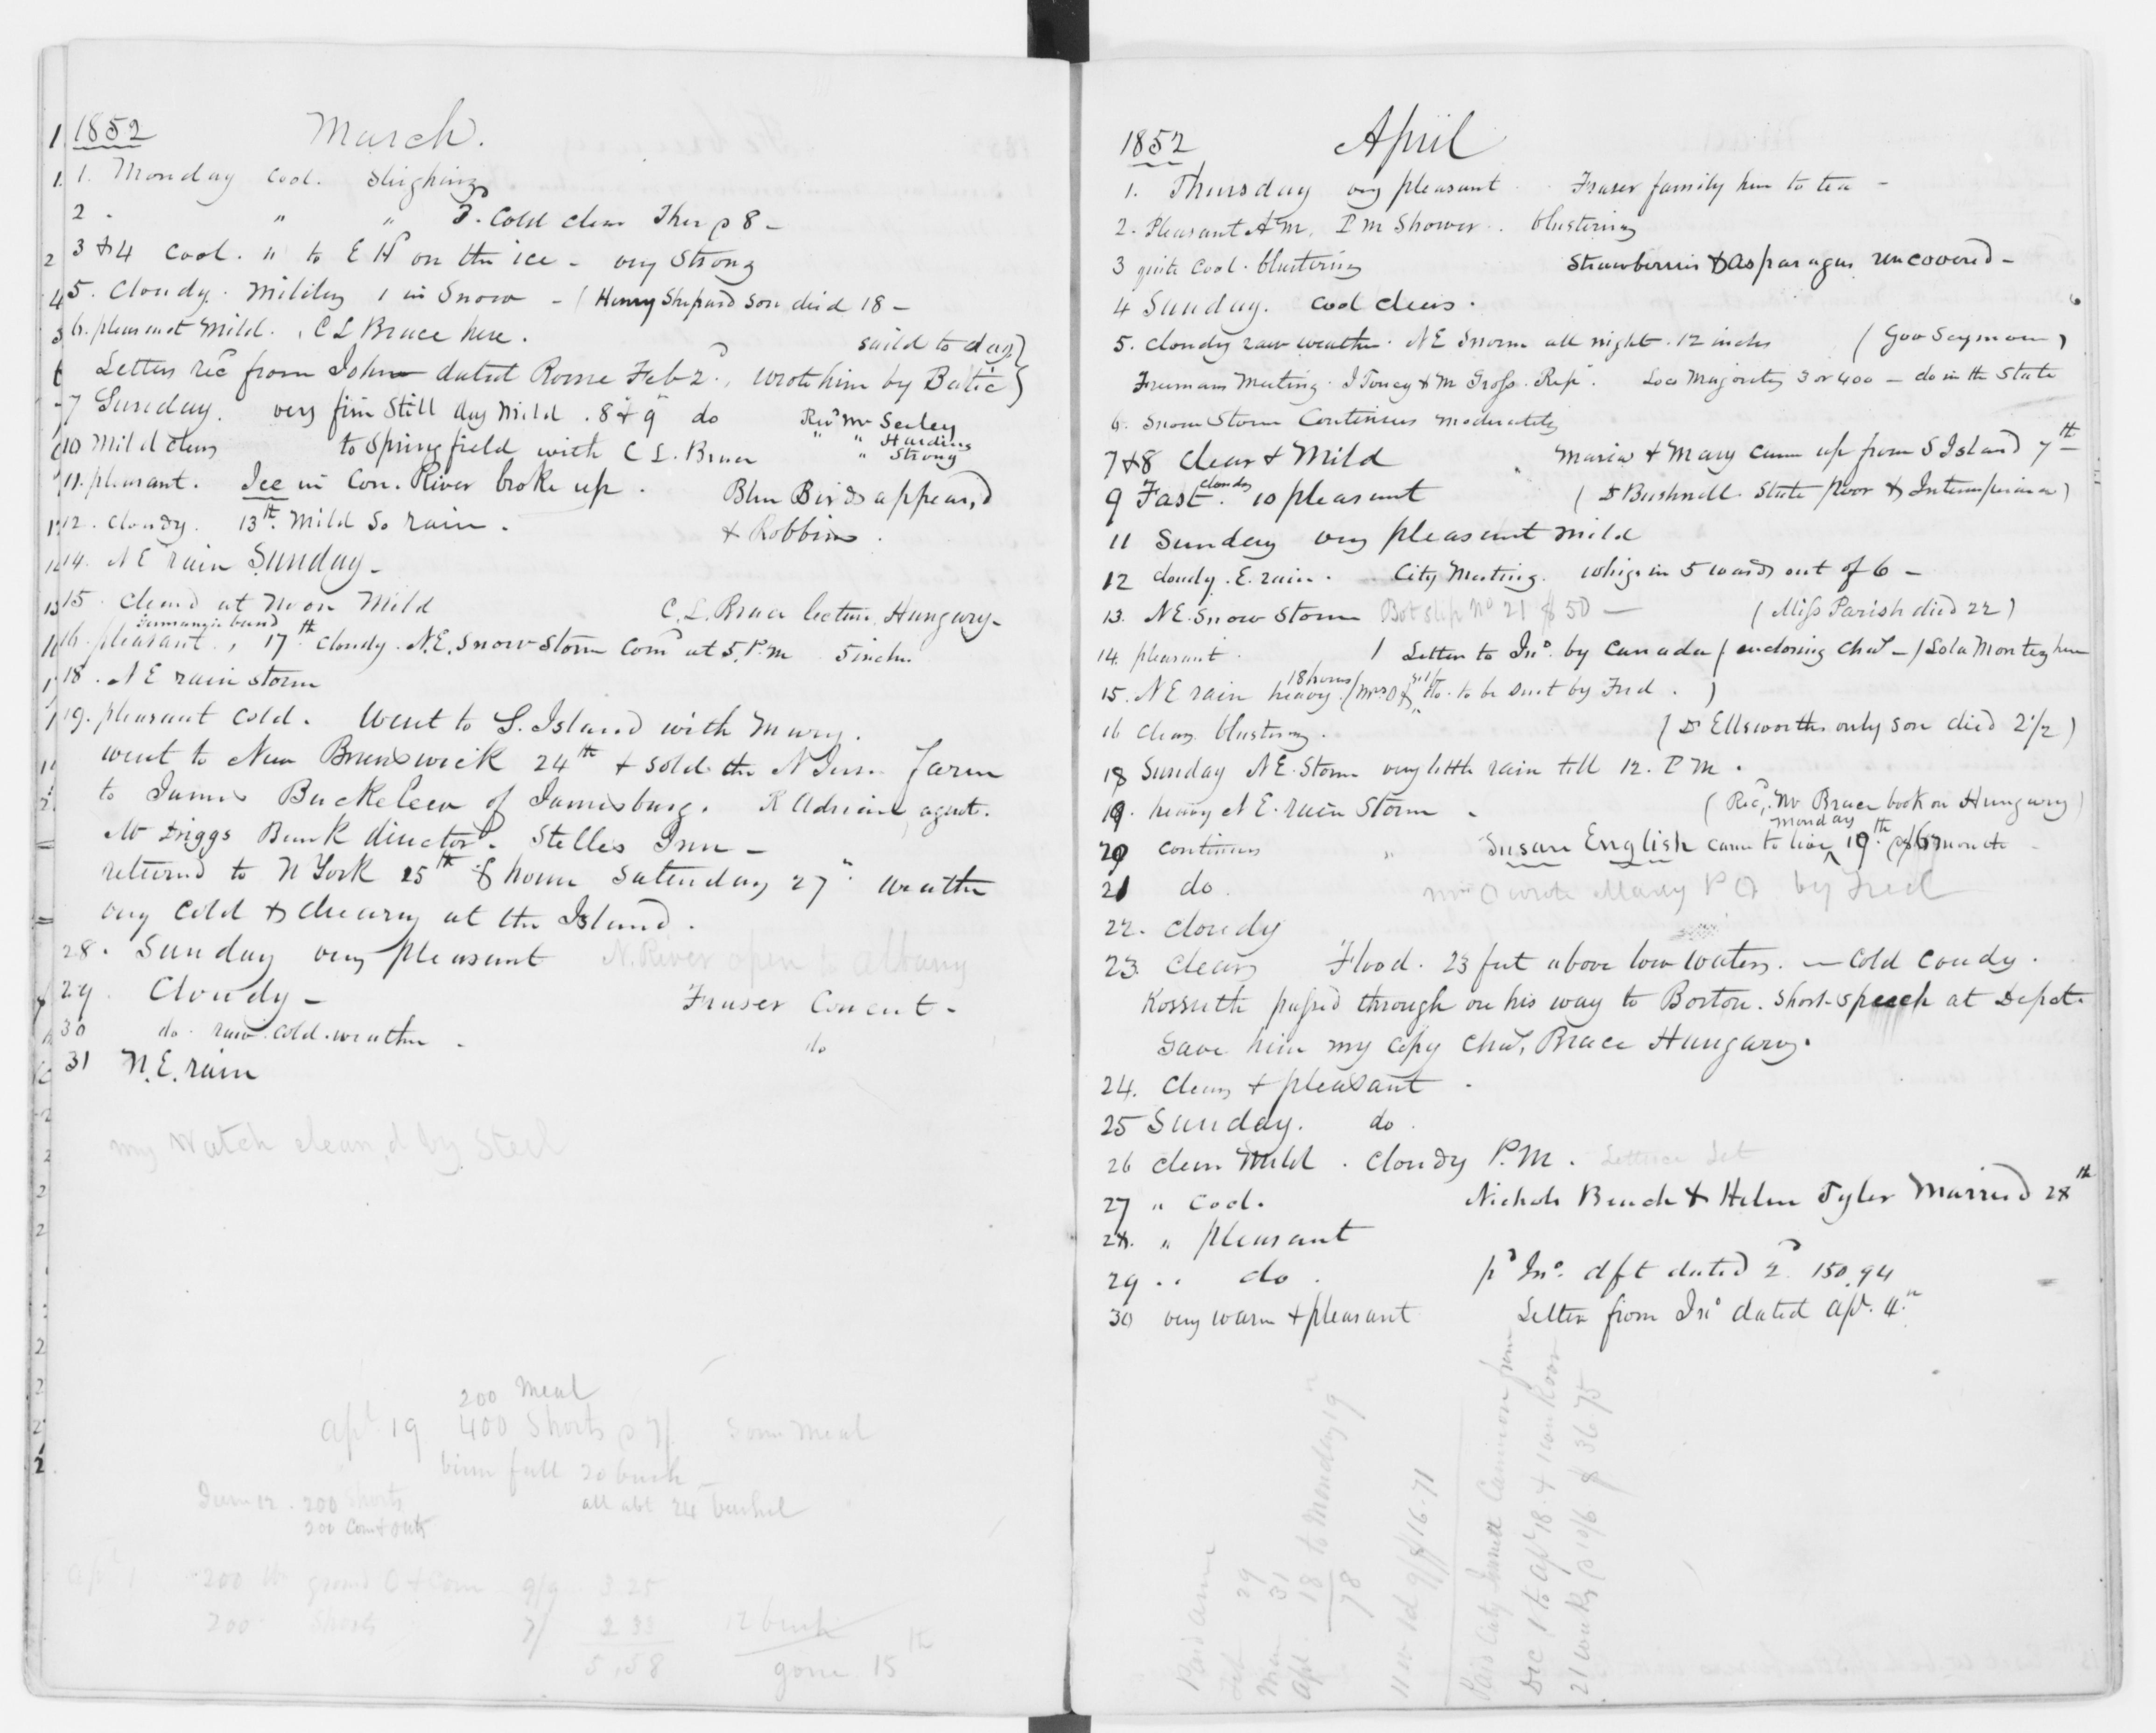 1852 March.
1. Monday Cool. Sleighing
2 . " " Cold clear Ther 8 -
3 & 4 Cool. " to E H on the ice - very Strong
5. Cloudy. 1 in Snow - ( Henry Shepard son died 18 -
6. pleasant mild. C L Brace here. saild to day
Letter rec^d from John dated Rome Feb 2^d., wrote him by Baltic
7 Sunday. very fine Still day Mild. 8 & 9" do Rev^d Mr Seeley
" " Harding
10 Mild clear to Springfield with C L. Brace " Strong
11. pleasant. Ice in Con. River broke up. Blue Birds appear,d
12. Cloudy. 13th. Mild So rain. & Robbins.
14. N E rain Sunday -
15. Clear'd at Noon Mild C. L. Brace lecture Hungary -
Germania band
16. pleasant., 17th Cloudy. N.E. Snow Storm Com^d at 5. P.m 5 inches
18. N E rain storm
19. pleasant Cold. Went to S. Island with Mary.
went to New Brunswick 24th & sold the N Jer. farm
to James Buckelew of Jamesburg. R Adrian agent.
Mr Griggs Bank director. Stelles Inn -
returned to N York 25th & home Saturday 27" weather
very Cold & dreary at the Island.
28. Sunday very pleasant N. River open to Albany
29 Cloudy - Fraser Concert -
30 do. raw cold weather - do
31 N. E. rain
my Watch clean,d by Steel
200 Meal
Apl 19 400 Shorts 7/. Some Meal
full 20 bush -
June 12. 200 Shorts all abt 24 bushel
200 Corn & Oats
Apl 1 200 lb ground O & Corn 9/9 3.25
200 Shorts 7/ 2 33 12 bush
5.58 gone 15th
1852 April
1. Thursday very pleasant. Fraser family here to tea -
2. Pleasant A m. P m Shower.. blustering
3 quite Cool. blustering Strawberries & Asparagus uncovered -
4 Sunday. Cool clear.
5. Cloudy raw weather. N E Snow all night. 12 inches ( Gov Seymour )
Freemans Meeting. I Toucy & M Gross. Rep^s. Loco Majority 3 or 400 - do in the State
6. Snow Storm Continues moderately
7 & 8 Clear & Mild Maria & Mary came up from S Island 7th
9 Fast. cloudy 10 pleasant ( Dr Bushnell State poor & Intemperance )
11 Sunday very pleasant mild
12 cloudy. E. rain. City Meeting. Whigs in 5 wards out of 6 -
13. N E. Snow Storm Bot Slip No 21 $50 - ( Miss Parish died 22 )
14. pleasant. 1 Letter to Jno. by Canada ( enclosing Chas - / Lola Montez here
15. N E rain heavy. 18 hours do. to be sent by Fred. )
16 Clear blustering. ( Dr Ellsworths only son died 2 1/2 )
18 Sunday N E. Storm very little rain till 12. P M.
19. heavy N E. rain Storm. ( Rec^d. Mr Brace book on Hungary )
20 Continues " Susan English came to live Monday 19th $6 month -
21 do. Mrs O wrote Mary P O by Fred
22. Cloudy
23. Clear Flood. 23 feet above low water. - Cold Coudy.
Kossuth passed through on his way to Boston. Short Speech at Depot.
Gave him my Copy Chas. Brace Hungary.
24. Clear & pleasant.
25 Sunday. do.
26 clear Mild. Cloudy P.M. Lettuce Set
27 " Cool. Nichols Beach & Helen Tyler Married 28th
28. " pleasant
29 " do. p^d Jno. dft dated 2^d 150.94
30 very warm & pleasant Letter from Jno dated Apl. 4."
Paid Ann
Feb 29
Mar 31
Apl. 18 to Monday 19"
78
11 w 1 d 9/ $16.71
Paid Caty from
Dec 1 to Apl 18. &
21 weeks 10/6 $36 75